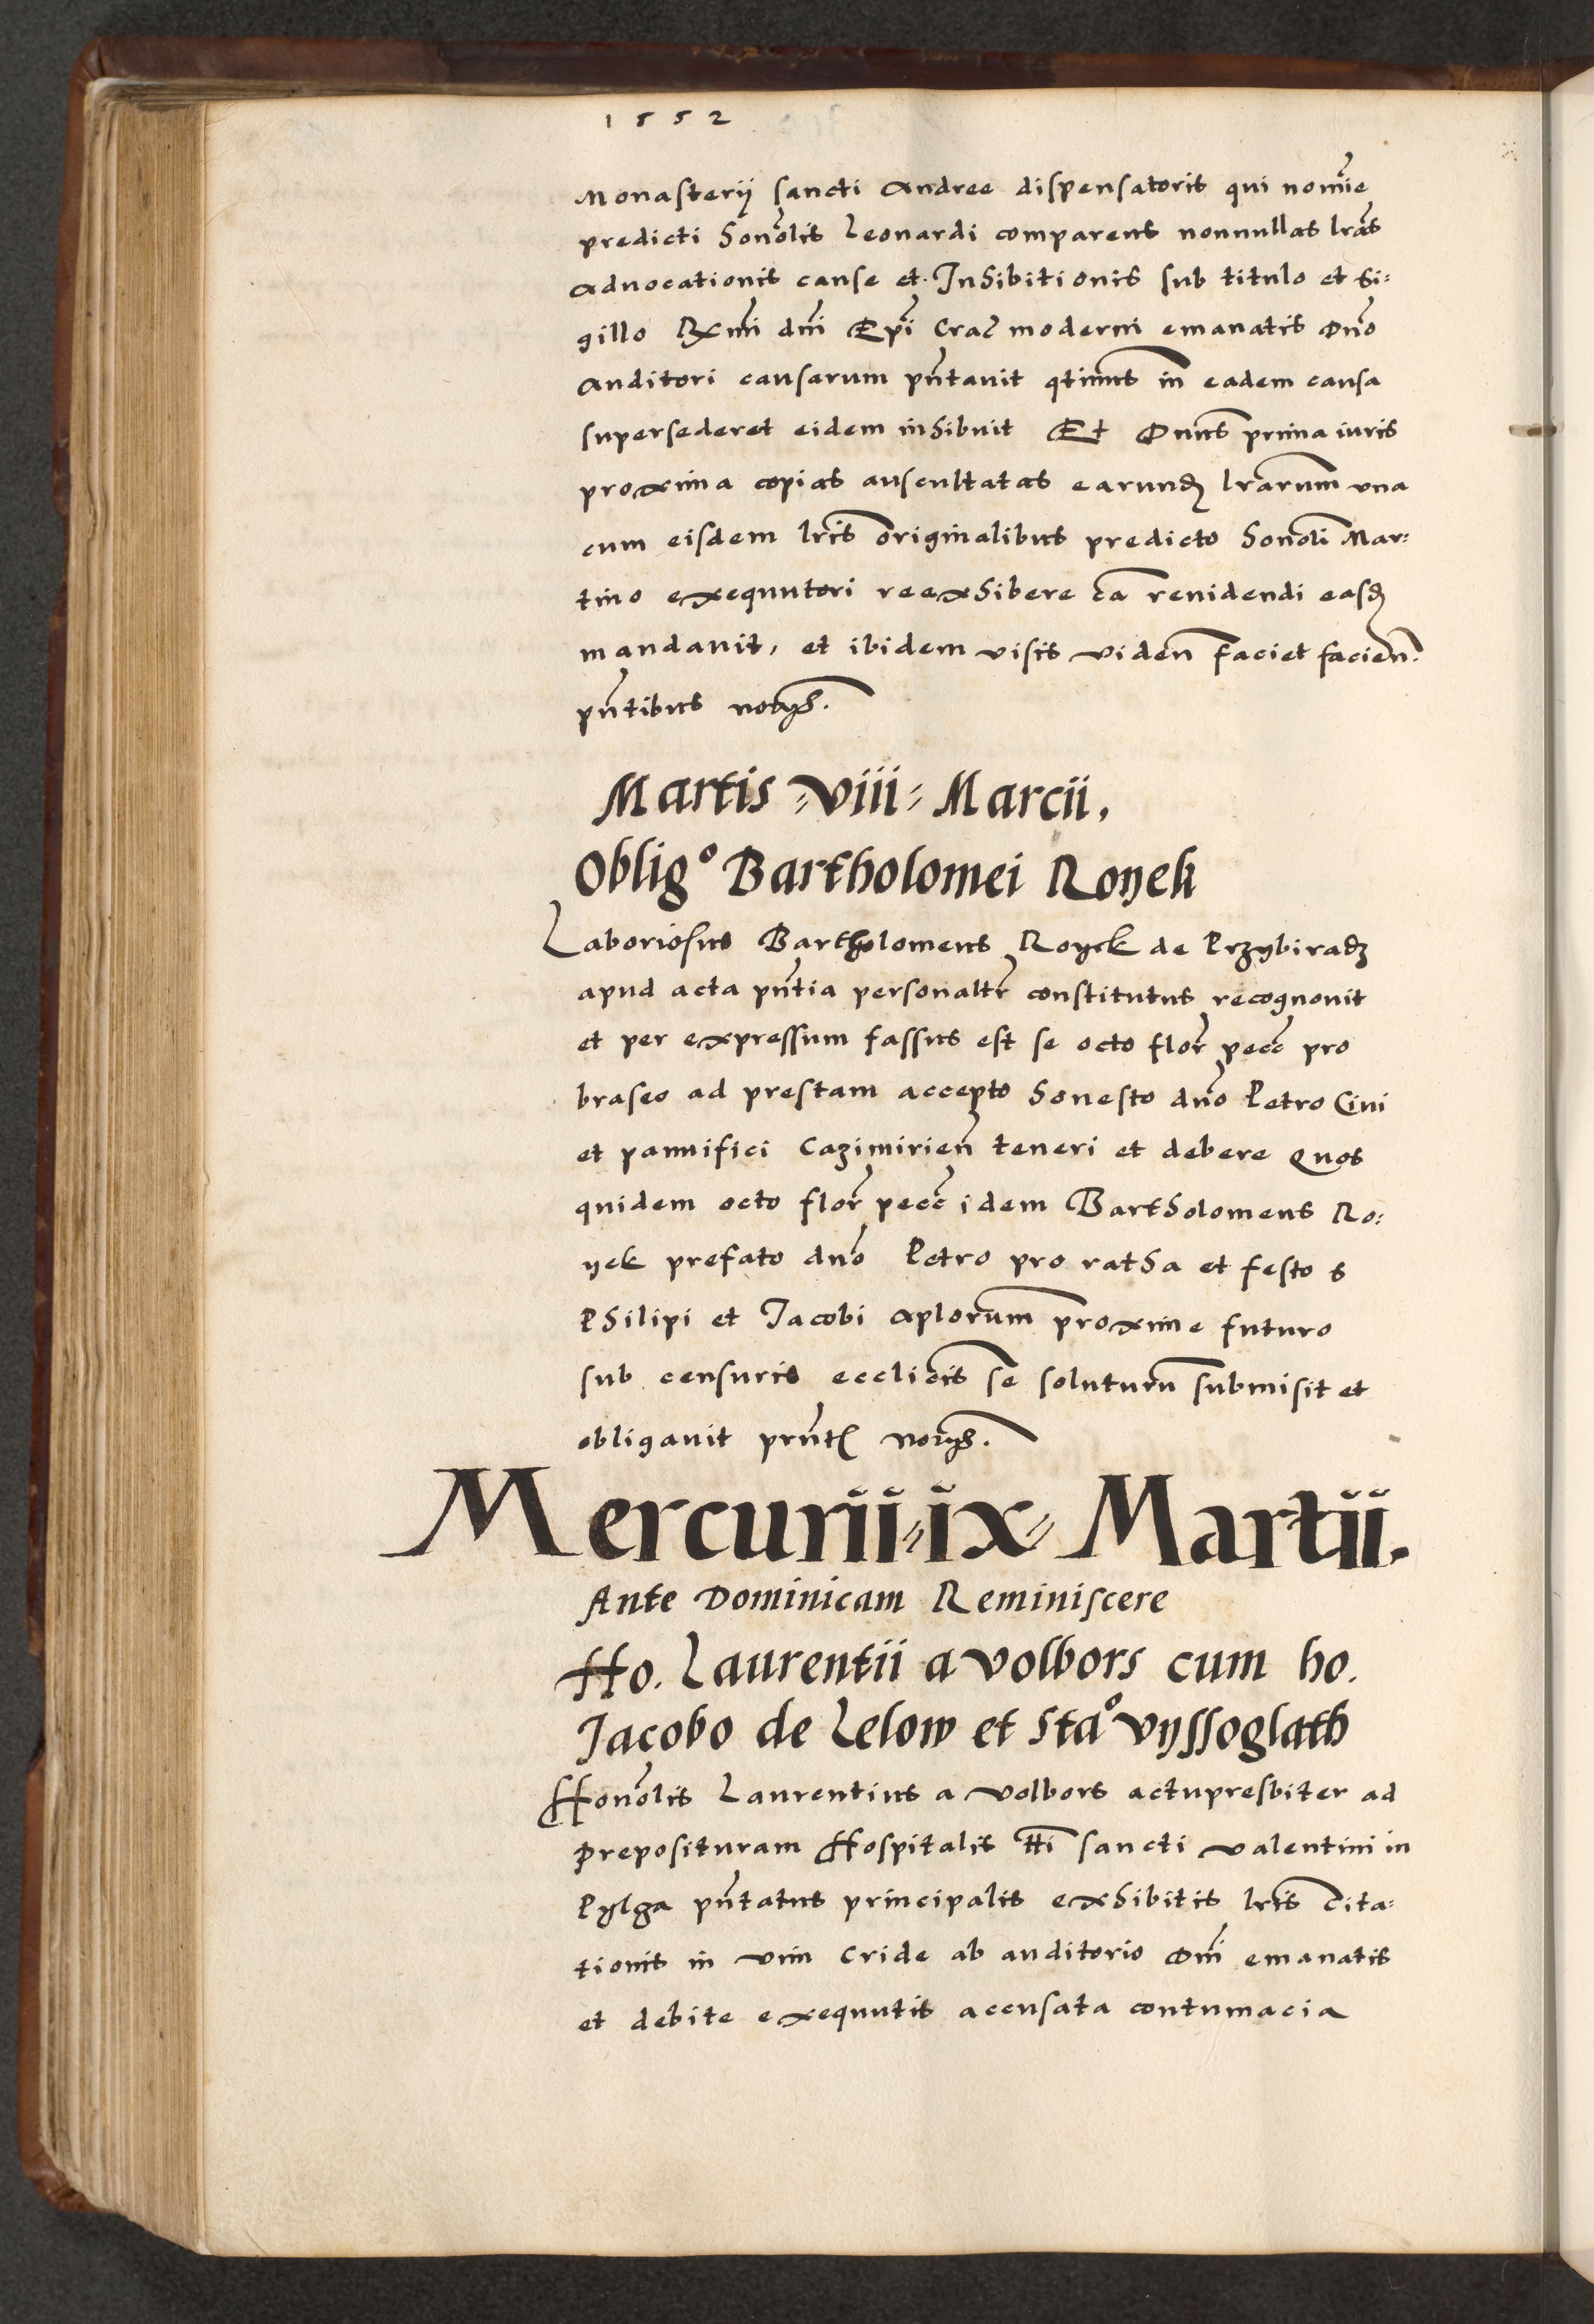 1552
Monasterij sancti Andree dispensatoris qui nomīe
predicti honōlis Leonardi comparens nonnullas lrās
aduocationis cause et Inhibitionis sub titulo et Si=
gillo Rx̄mi dn̄i Ep̄i Crac̄ moderni emanatis Dn̄o
Auditori causarum pn̄tauit qt̄inus in eadem causa
supersederet eidem inhibuit Et Dn̄us prima iuris
proxima copias auscultatas earund̄ lrārum vna
cum eisdem lrīs originalibus predicto honōli Mar=
tino exequutori reexhibere cā reuidendi easd̄
mandauit, et ibidem visis viden̄ faciet facien̄.
pn̄tibus notijs.
Martis viii Marcii.
Obligº Bartholomei Royek
Laboriosus Bartholomeus Royek de Przybiradz
apud acta pn̄tia personaltr̄ constitutus recognouit
et per expressum fassus est se octo flor̄ pecc̄ pro
braseo ad prestam accepto honesto dn̄o Petro Ciui
et pannifici Cazimirien̄ teneri et debere Quos
quidem octo flor̄ pecc̄ idem Bartholomeus Ro=
yek prefato dn̄o Petro pro ratha et festo s
Philipi et Jacobi aplorum̄ proxime futuro
sub censuris ecclicīs se soluturū submisit et
obligauit prn̄t notijs.
Mercurii ix Martii.
Ante Dominicam Reminiscere
Ho. Laurentii a volbors cum ho.
Jacobo de Lelow et Staº vyssoglath
Honōlis Laurentius a volbors actupresbiter ad
Preposituram Hospitalis tti sancti valentini in
Pylga pn̄tatus principalis exhibitis lrīs Cita=
tionis in vim Cride ab auditorio Dn̄i emanatis
et debite exequutis accusata contumacia